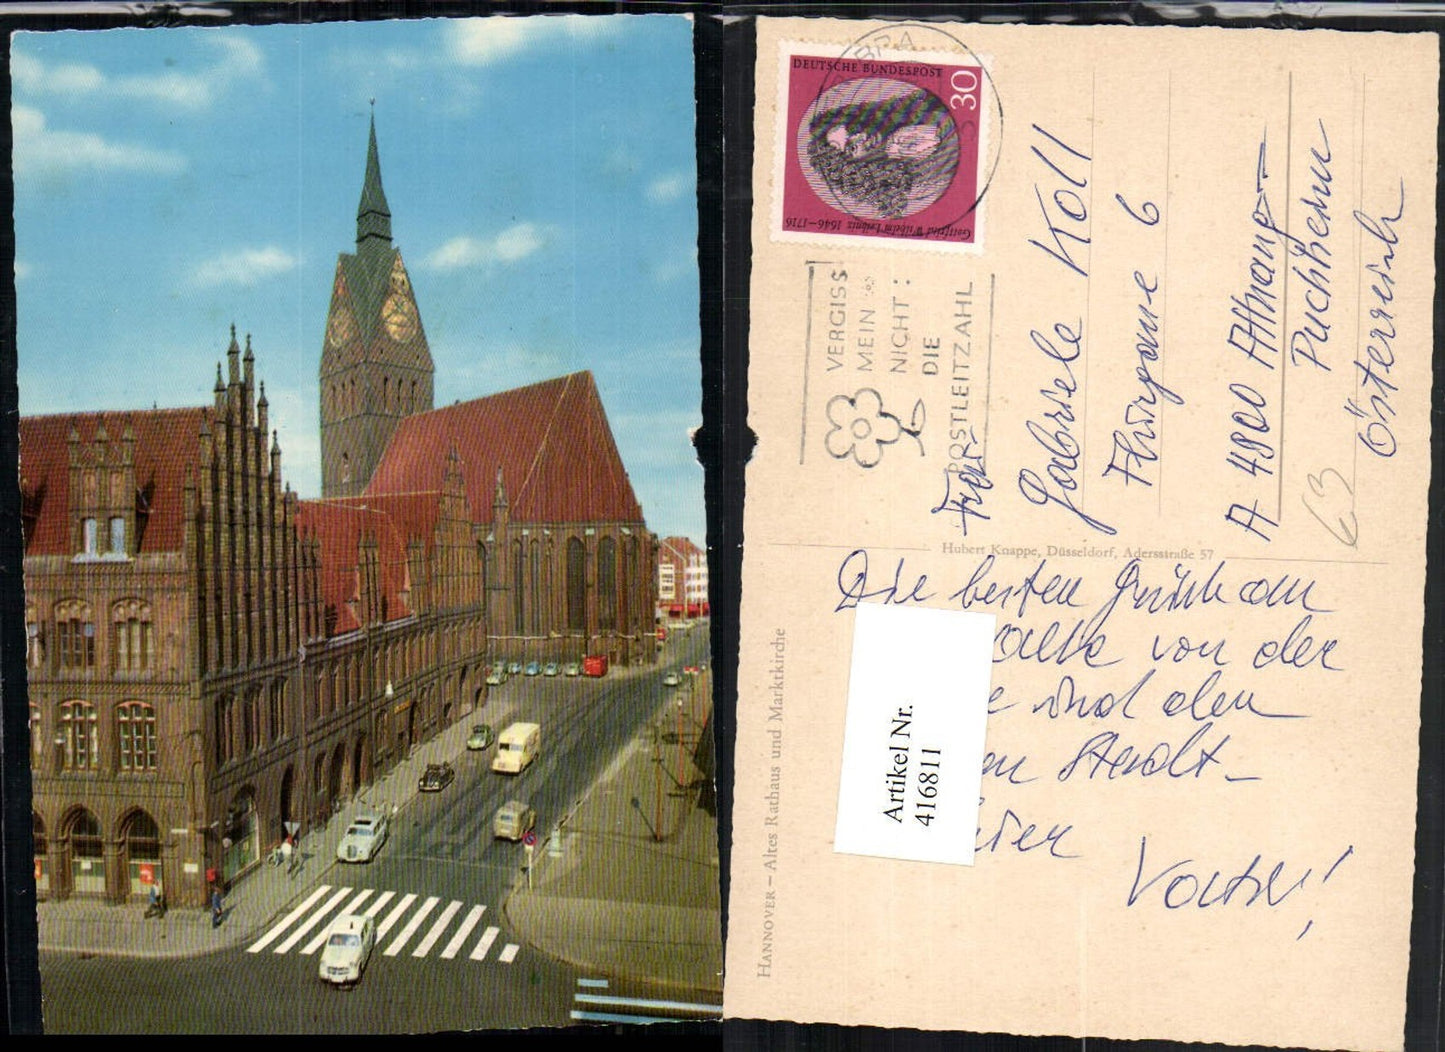 DEUTSCHE BUNDESPOST
30
Gottfried Wilhelm Leibniz 1646–1716
VERGISS
MEIN
NICHT:
DIE
POSTLEITZAHL
Gabriele Koll
6
A 4800 Attnang-
Puchheim
Österreich
63
Hubert Knappe, Düsseldorf, Adersstraße 57
HANNOVER – Altes Rathaus und Marktkirche
Die besten
Alle von der
und den
Stadt-
Artikel Nr.
416811